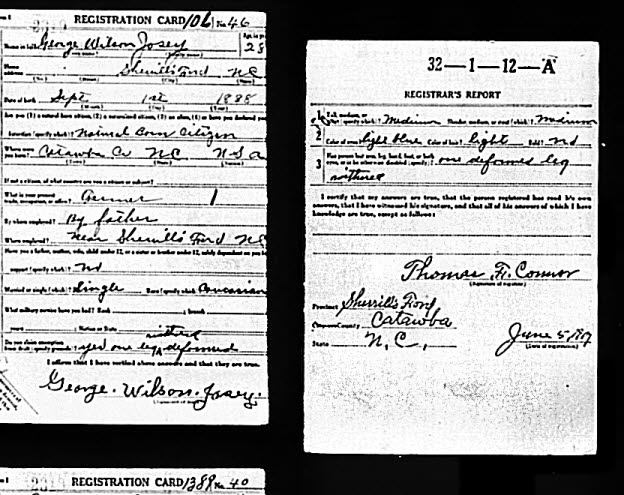 REGISTRATION CARD 106 No 46
George Wilson Josey
Age, in yrs
28
Sherrills Ford NC
Date of birth Sept 1st 1888
Are you (1) a natural born citizen, (2) a naturalized citizen, (3) an alien, (4) or have you declared your
intention (specify which)? Natural Born Citizen
Catawba Co NC U S A
If not a citizen, of what country are you a citizen or subject?
What is your present
trade, occupation, or office? Farmer 1
By whom employed? By father
Where employed? Near Sherrill's Ford NC
Have you a father, mother, wife, child under 12, or a sister or brother under 12, solely dependent on you for
support (specify which)? No
Married or single (which)? Single Race (specify which)? Caucasian
What military service have you had? Rank branch
years Nation or State
withered
Do you claim exemption
from draft (specify grounds)? yes one leg deformed
I affirm that I have verified above answers and that they are true.
George. Wilson. Josey.
REGISTRATION CARD 1389 No 40
32—1—12—A
REGISTRAR'S REPORT
1 Tall, medium, or
short (specify which)? Medium Slender, medium, or stout (which)? Medium
2 Color of eyes? light blue Color of hair? light Bald? No
3 Has person lost arm, leg, hand, foot, or both
eyes, or is he otherwise disabled (specify)? one deformed leg
withered
I certify that my answers are true, that the person registered has read his own
answers, that I have witnessed his signature, and that all of his answers of which I have
knowledge are true, except as follows:
Thomas F. Connor
(Signature of registrar)
Precinct Sherrill's Ford
City or County Catawba
State N. C.
June 5/17
(Date of registration)